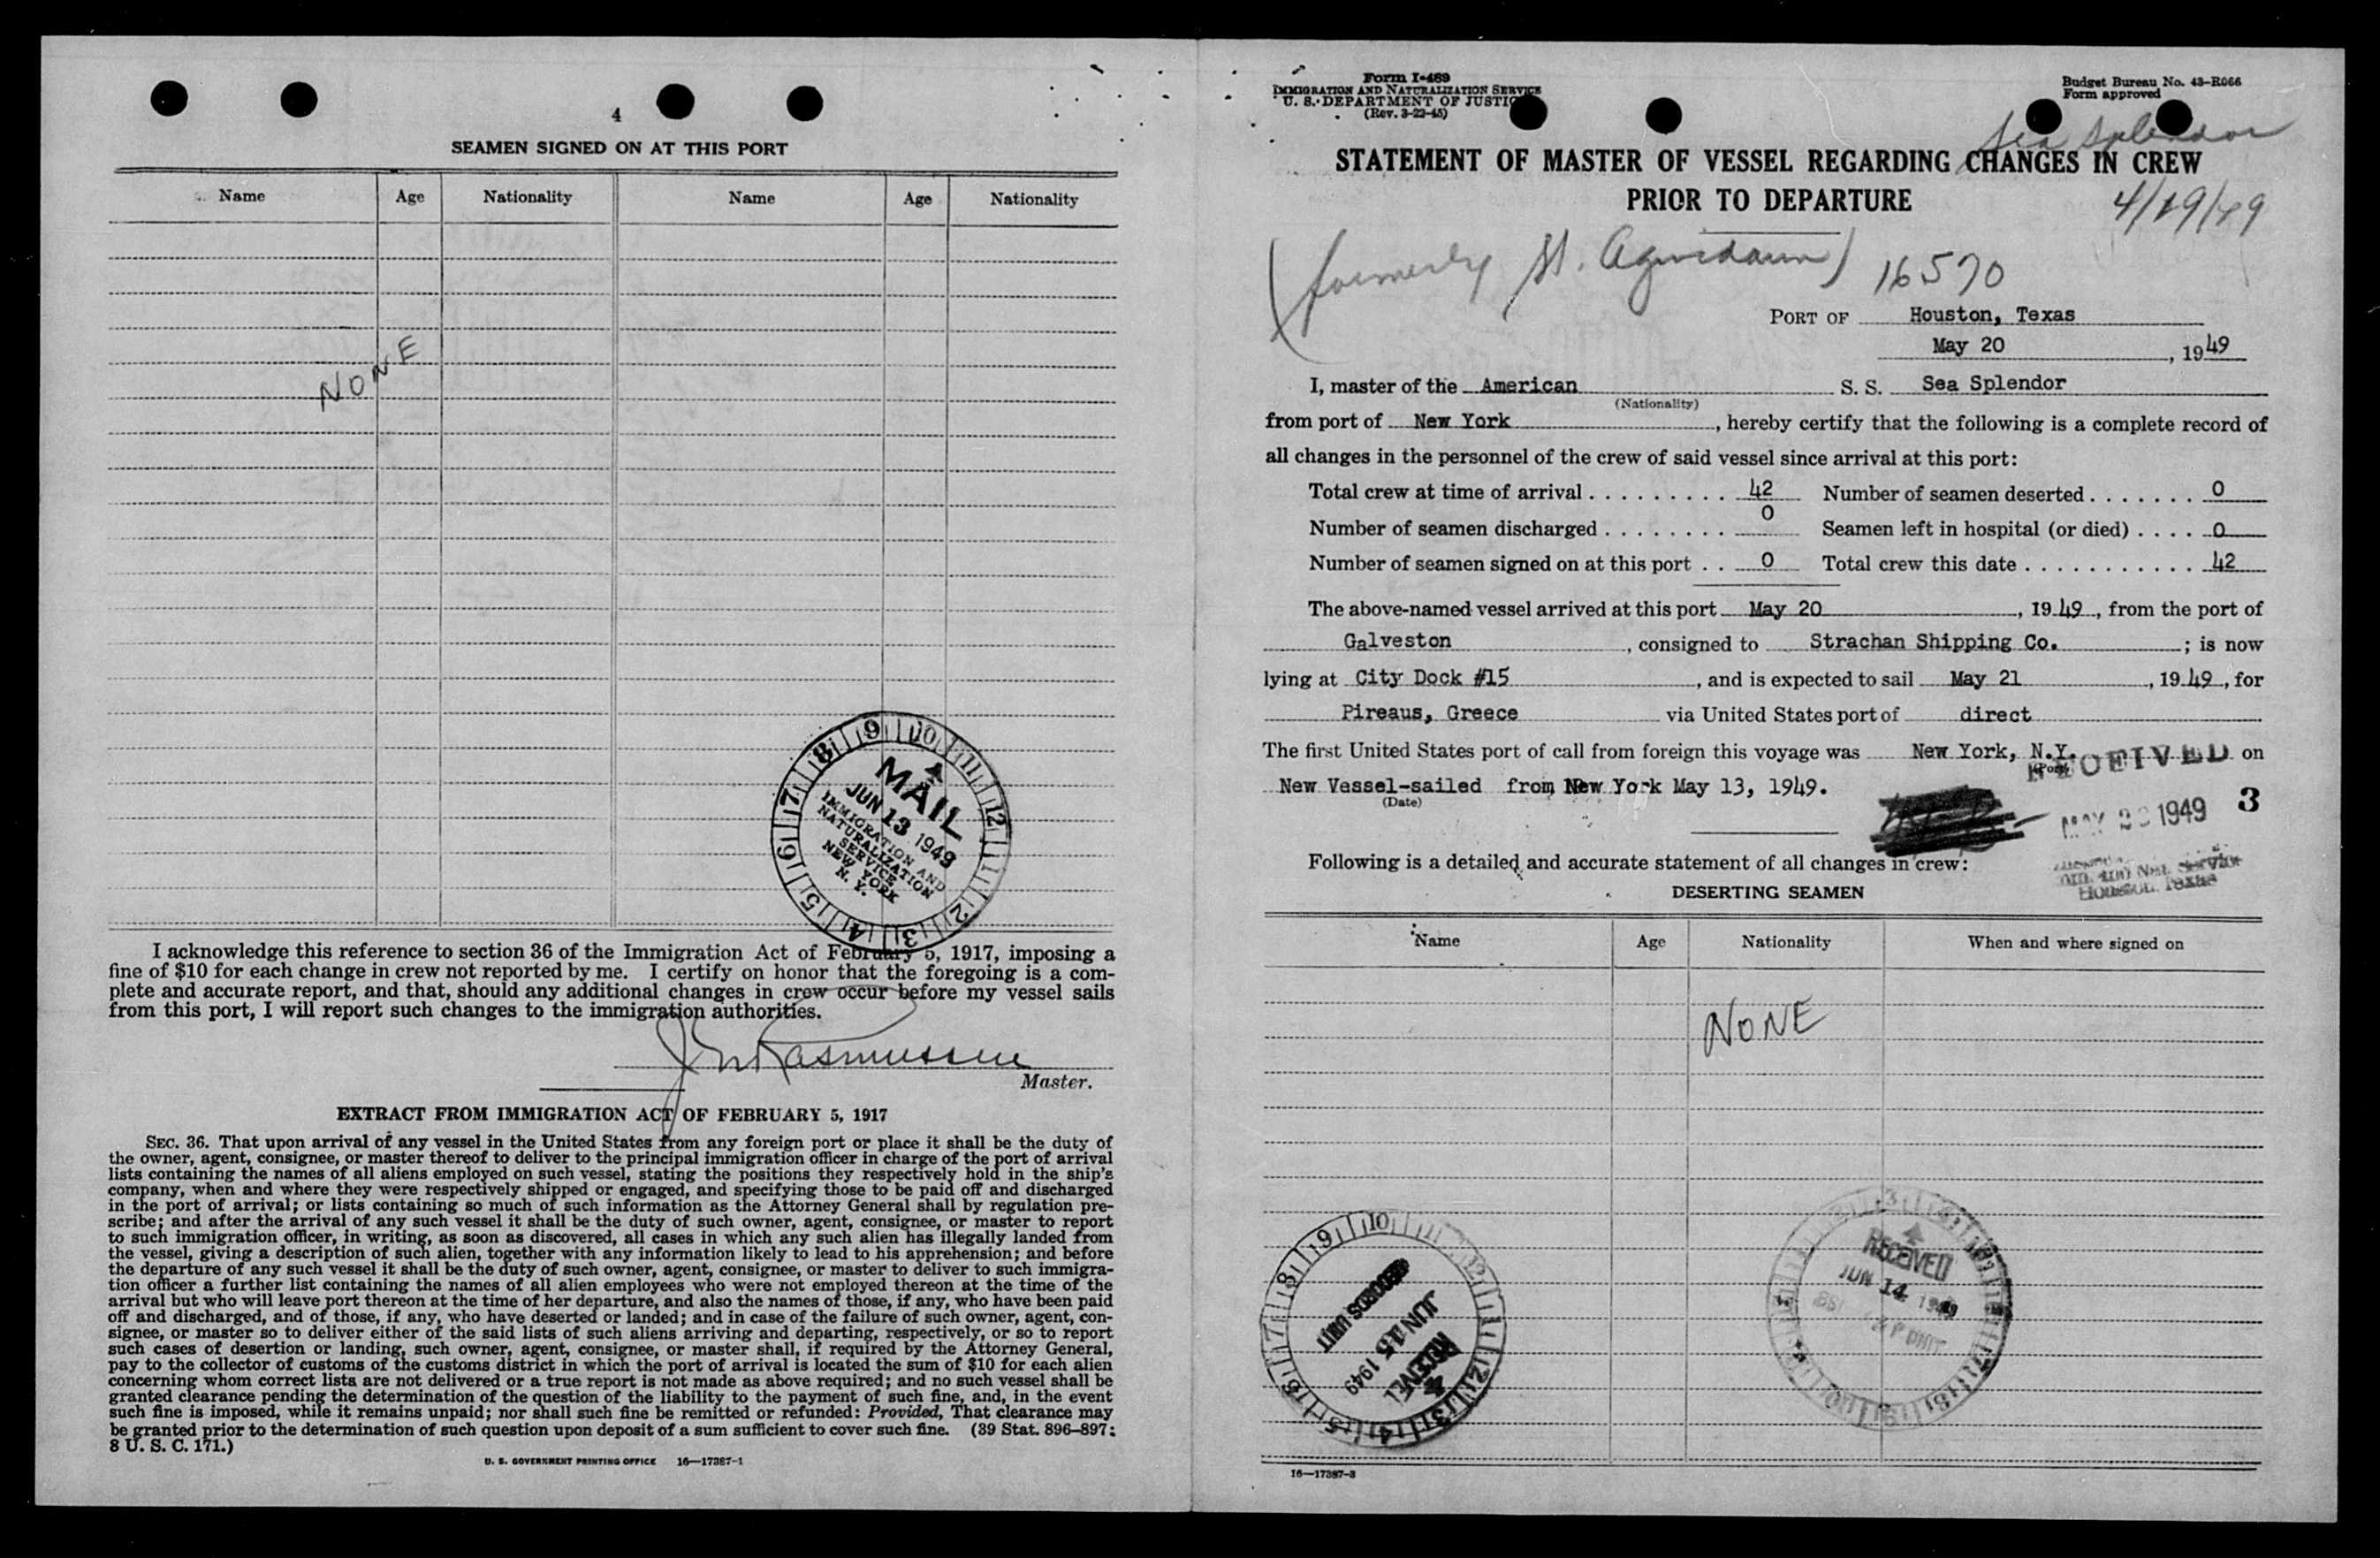 4
SEAMEN SIGNED ON AT THIS PORT
Name Age Nationality Name Age Nationality
NONE
MAIL
JUN 13 1949
IMMIGRATION AND
NATURALIZATION
SERVICE
NEW YORK
N. Y.
I acknowledge this reference to section 36 of the Immigration Act of February 5, 1917, imposing a
fine of $10 for each change in crew not reported by me. I certify on honor that the foregoing is a com-
plete and accurate report, and that, should any additional changes in crew occur before my vessel sails
from this port, I will report such changes to the immigration authorities.
Rasmussen
Master.
EXTRACT FROM IMMIGRATION ACT OF FEBRUARY 5, 1917
SEC. 36. That upon arrival of any vessel in the United States from any foreign port or place it shall be the duty of
the owner, agent, consignee, or master thereof to deliver to the principal immigration officer in charge of the port of arrival
lists containing the names of all aliens employed on such vessel, stating the positions they respectively hold in the ship's
company, when and where they were respectively shipped or engaged, and specifying those to be paid off and discharged
in the port of arrival; or lists containing so much of such information as the Attorney General shall by regulation pre-
scribe; and after the arrival of any such vessel it shall be the duty of such owner, agent, consignee, or master to report
to such immigration officer, in writing, as soon as discovered, all cases in which any such alien has illegally landed from
the vessel, giving a description of such alien, together with any information likely to lead to his apprehension; and before
the departure of any such vessel it shall be the duty of such owner, agent, consignee, or master to deliver to such immigra-
tion officer a further list containing the names of all alien employees who were not employed thereon at the time of the
arrival but who will leave port thereon at the time of her departure, and also the names of those, if any, who have been paid
off and discharged, and of those, if any, who have deserted or landed; and in case of the failure of such owner, agent, con-
signee, or master so to deliver either of the said lists of such aliens arriving and departing, respectively, or so to report
such cases of desertion or landing, such owner, agent, consignee, or master shall, if required by the Attorney General,
pay to the collector of customs of the customs district in which the port of arrival is located the sum of $10 for each alien
concerning whom correct lists are not delivered or a true report is not made as above required; and no such vessel shall be
granted clearance pending the determination of the question of the liability to the payment of such fine, and, in the event
such fine is imposed, while it remains unpaid; nor shall such fine be remitted or refunded: Provided, That clearance may
be granted prior to the determination of such question upon deposit of a sum sufficient to cover such fine. (39 Stat. 896–897;
8 U. S. C. 171.)
U. S. GOVERNMENT PRINTING OFFICE 16—17387-1
Form I-489
IMMIGRATION AND NATURALIZATION SERVICE
U. S. DEPARTMENT OF JUSTICE
(Rev. 3-22-45)
Budget Bureau No. 43-R066
Form approved
Sea Splendor
STATEMENT OF MASTER OF VESSEL REGARDING CHANGES IN CREW
PRIOR TO DEPARTURE
4/19/49
(formerly St.
16570
PORT OF Houston, Texas
May 20, 1949
I, master of the American S. S. Sea Splendor
(Nationality)
from port of New York, hereby certify that the following is a complete record of
all changes in the personnel of the crew of said vessel since arrival at this port:
Total crew at time of arrival . . . . . . . . . 42 Number of seamen deserted . . . . . . . 0
Number of seamen discharged . . . . . . . . 0 Seamen left in hospital (or died) . . . . 0
Number of seamen signed on at this port . . 0 Total crew this date . . . . . . . . . . . 42
The above-named vessel arrived at this port May 20, 1949, from the port of
Galveston, consigned to Strachan Shipping Co.; is now
lying at City Dock #15, and is expected to sail May 21, 1949, for
Pireaus, Greece via United States port of direct
The first United States port of call from foreign this voyage was New York, N.Y. on
(Port)
New Vessel-sailed from New York May 13, 1949.
(Date)
RECEIVED
MAY 1949
3
Houston, Texas
Following is a detailed and accurate statement of all changes in crew:
DESERTING SEAMEN
Name Age Nationality When and where signed on
NONE
RECEIVED
JUN 14 1949
RECORDS UNIT
JUN 15 1949
RECEIVED
16—17387-3